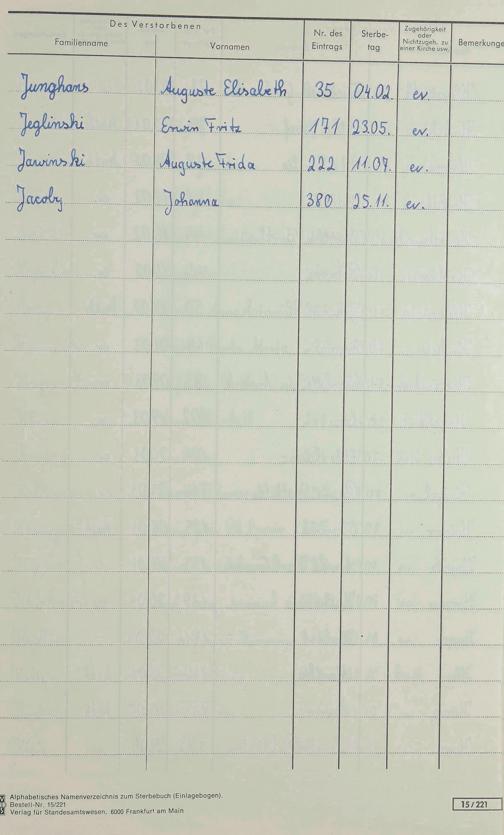 Des Verstorbenen
Familienname Vornamen Nr. des Eintrags Sterbe-tag Zugehörigkeit oder Nichtzugeh. zu einer Kirche usw. Bemerkunge
Junghans Auguste Elisabeth 35 04.02. ev.
Jeglinski Erwin Fritz 171 23.05. ev.
Jawinski Auguste Frida 222 11.07. ev.
Jacoby Johanna 380 25.11. ev.
Alphabetisches Namenverzeichnis zum Sterbebuch (Einlagebogen).
Bestell-Nr. 15/221
Verlag für Standesamtswesen, 6000 Frankfurt am Main
15/221